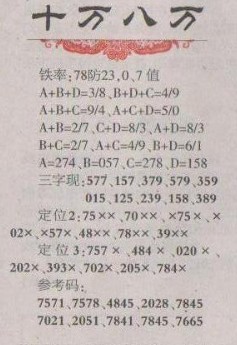 十万八万
铁率:78防23、0、7值
A+B+D=3/8、B+D+C=4/9
A+B+C=9/4、A+C+D=5/0
A+B=2/7、C+D=8/3、A+D=8/3
B+C=2/7、A+C=4/9、B+D=6/1
A=274、B=057、C=278、D=158
三字现:577、157、379、579、359
015、125、239、158、389
定位2:75××、70××、×75×、×
02×、×57×、48××、78××、39××
定位3:757×、484×、020×、
202×、393×、702×、205×、784×
参考码:
7571、7578、4845、2028、7845
7021、2051、7841、7845、7665